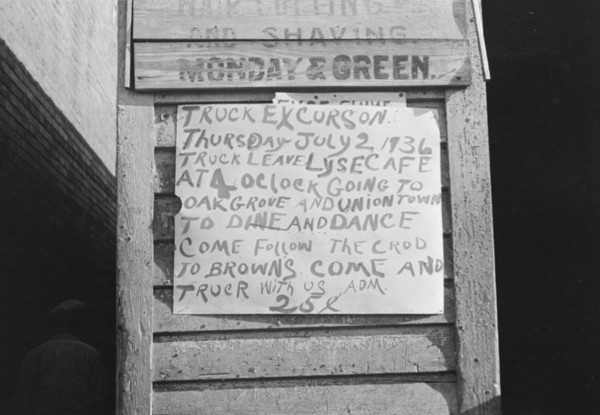 HAIR CUTTING
AND SHAVING
MONDAY & GREEN.
TRUCK EXCURSON.
THURSDAY JULY 2 1936
TRUCK LEAVE LYSE CAFE
AT 4 OCLOCK GOING TO
OAK GROVE AND UNION TOWN
TO DINE AND DANCE
COME FOLLOW THE CROD
TO BROWNS COME AND
TRUCR WITH US ADM.
25¢